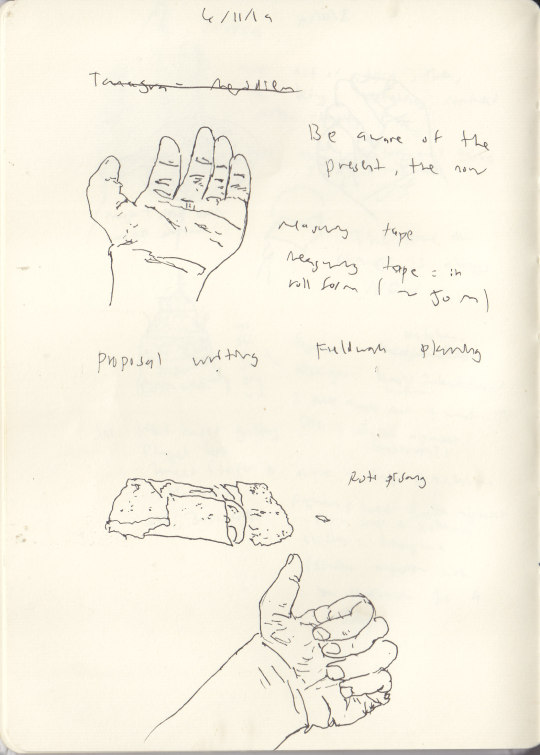 6/11/19
Be aware of the
present, the now
measuring tape
measuring tape = in
roll form (~ 50 m)
proposal writing
Fieldwork planning
Roti pisang